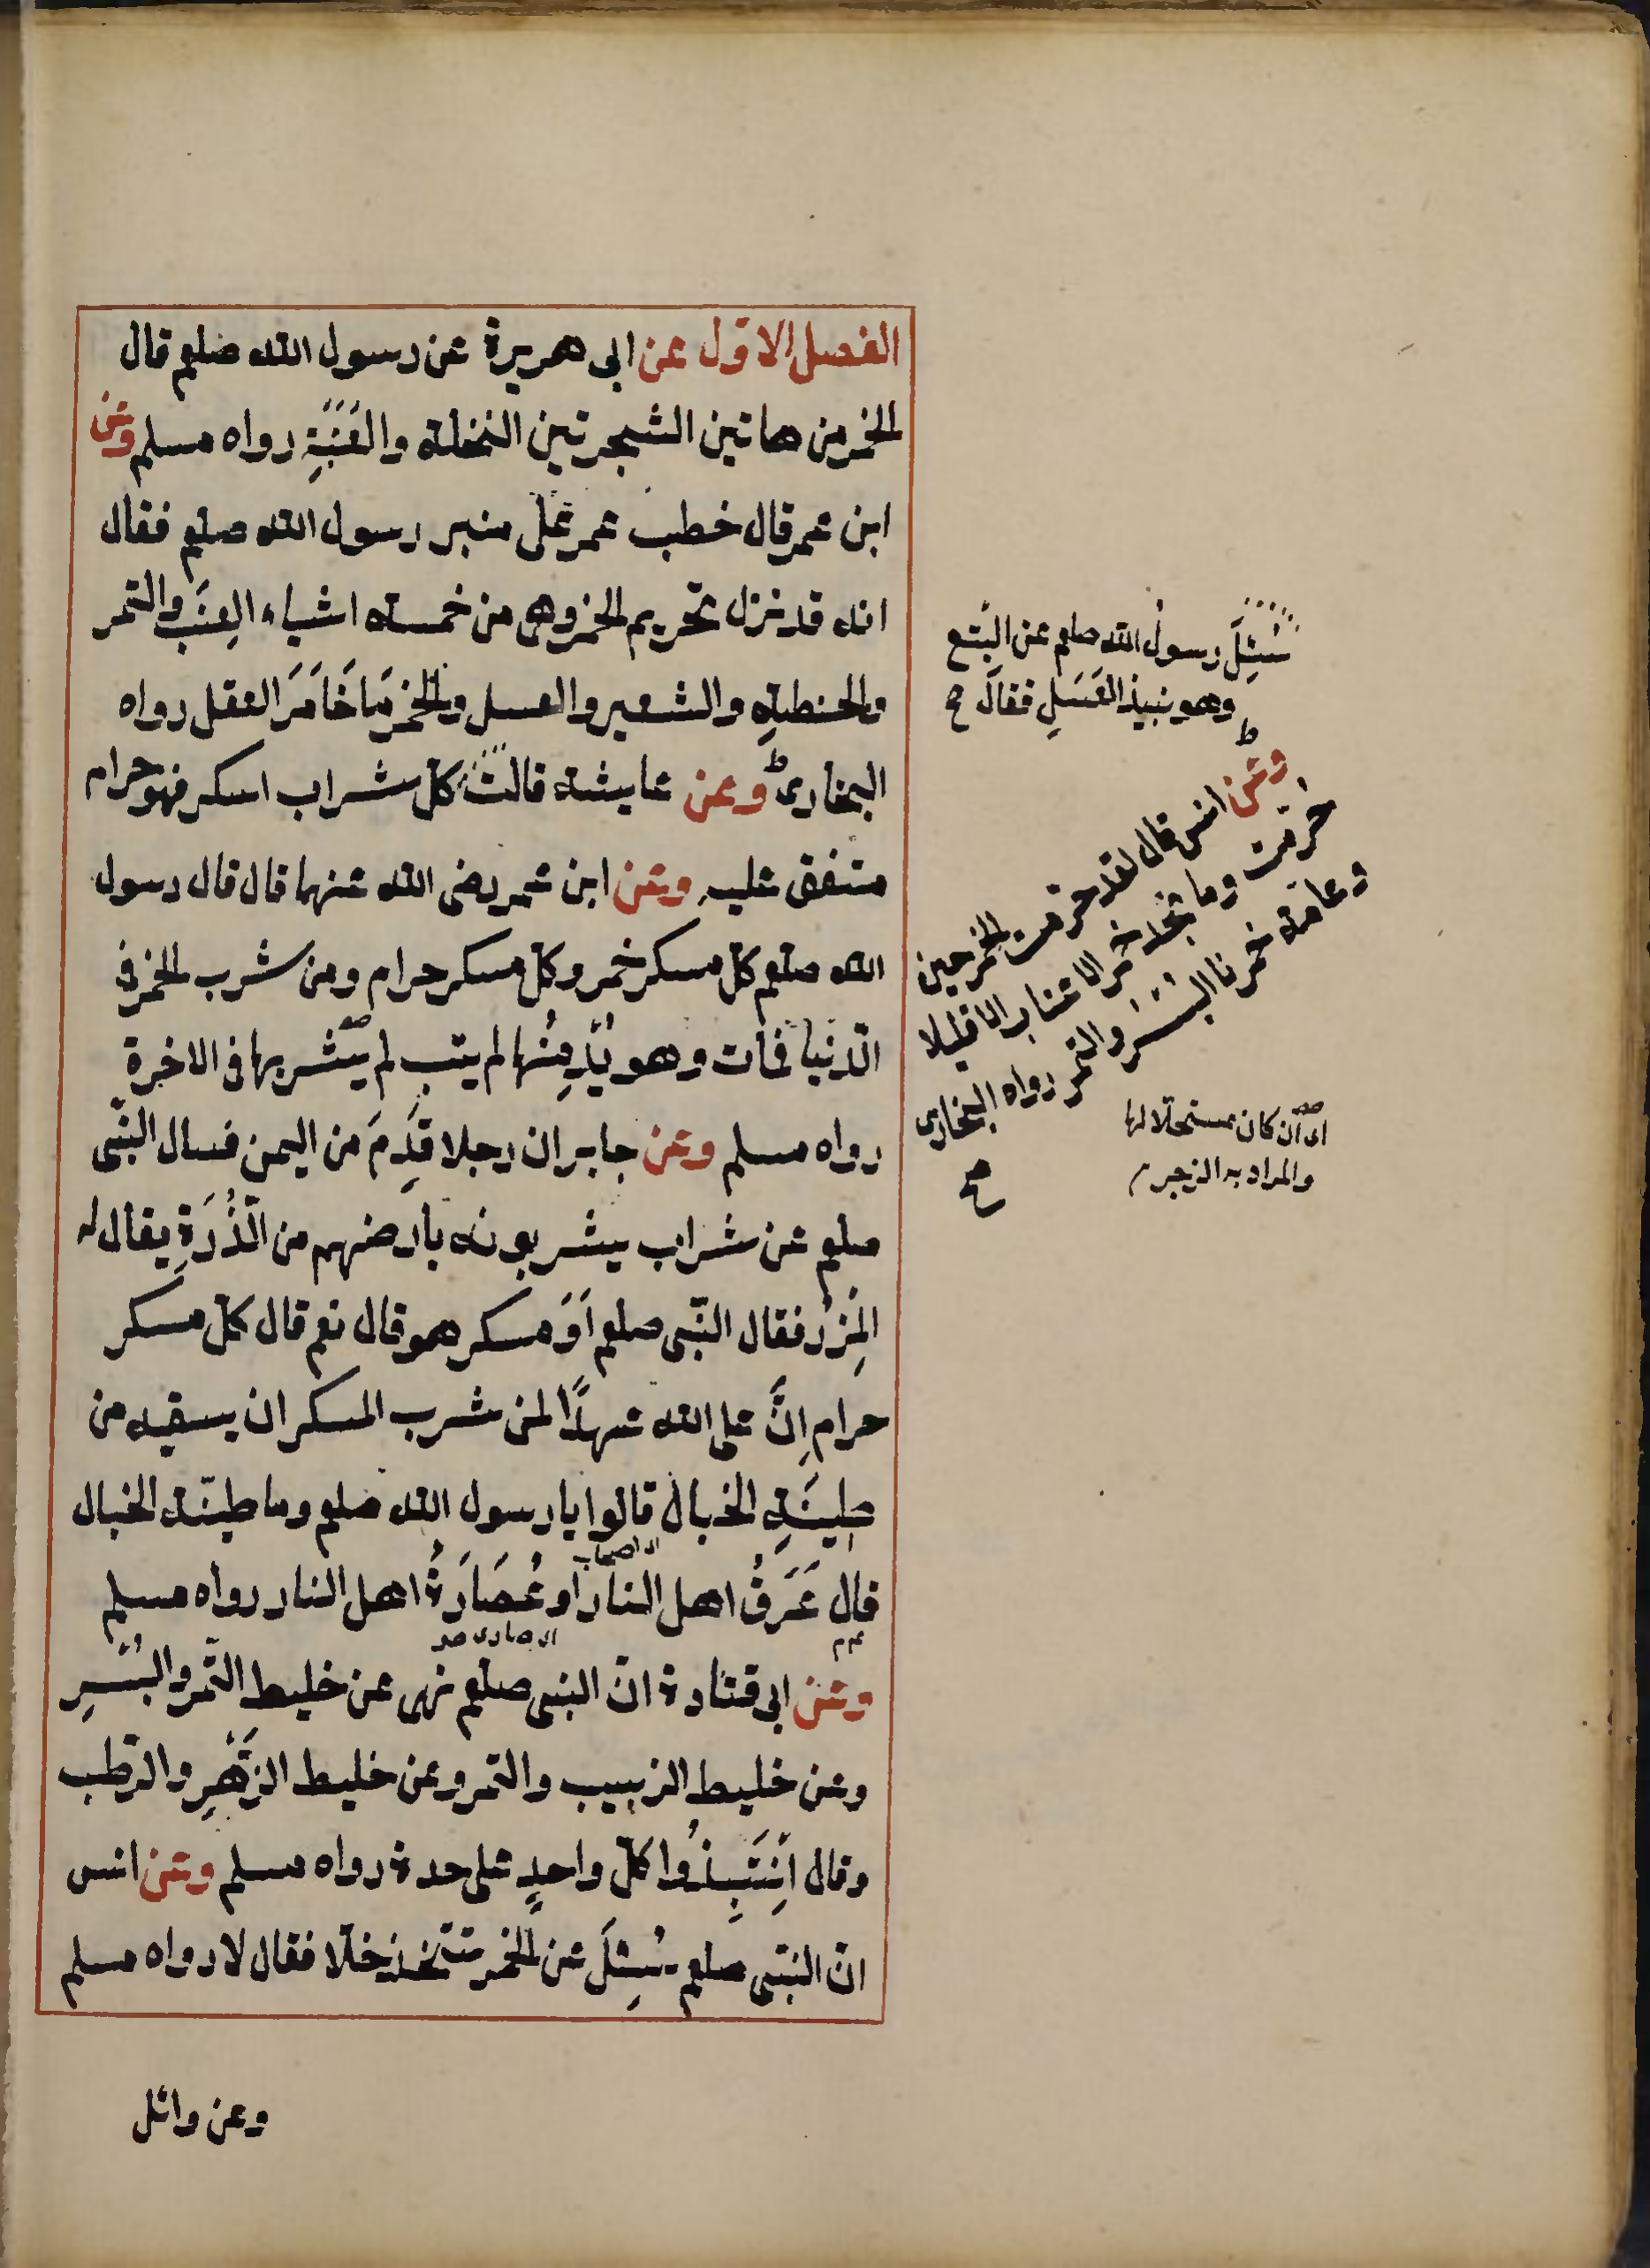 الفصل الاوّل عن ابى هريرة عن رسول الله صلعم قال
الخمر من هاتين الشجرتين النخلة والعِنَبَةِ رواه مسلم وعن
ابن عمر قال خطب عمر على منبر رسول الله صلعم فقال
انه قد نزل تحريم الخمر وهى من خمسة اشياء العِنَب والتمر
والحنطةِ والشعير والعسل والخمر مَا خَامَرَ العقل رواه
البخارى وعن عايشة قالت كلّ شراب اسكر فهو حرام
متفق عليه وعن ابن عمر رضى الله عنهما قال قال رسول
الله صلعم كلّ مسكر خمر وكلّ مسكر حرام ومن شرب الخمر فى
الدّنيا فمات وهو يُدْمِنُها لم يتب لم يشربها فى الاخرة
رواه مسلم وعن جابر ان رجلا قَدِمَ من اليمن فسال النّبى
صلعم عن شراب يشربونه بأرضهم من الذُّرَةِ يقال له
المِزْر فقال النّبى صلعم اَوَ مسكر هو قال نعم قال كلّ مسكر
حرام اِنَّ على الله عهدًا لمن شرب المسكر ان يسقيه من
طِينَةِ الخبال قالوا يا رسول الله صلعم وما طينة الخبال
قال عَرَقُ اهل النار او عُصَارَةُ اهل النار رواه مسلم
وعن ابى قتادة انّ النبى صلعم نهى عن خليط التّمر والبُسْرِ
وعن خليط الزبيب والتمر وعن خليط الزَّهْرِ والرّطب
وقال اِنْتَبِذُوا كلّ واحدٍ على حدة رواه مسلم وعن انس
انّ النّبى صلعم سُئِلَ عن الخمر تتّخذ خلّا فقال لا رواه مسلم
وعن وائل
سُئِلَ رسول الله صلعم عن البِتع
وهو نبيذ العَسَلِ فقال
وعن انس قال لقد حرّمت الخمر حين
حُرّمت وما نجد خمر الاعناب الا قليلا
وعامّة خمرنا البُسْر والتّمر رواه البخارى
اى ان كان مستحلّا لها
والمراد به الزجر